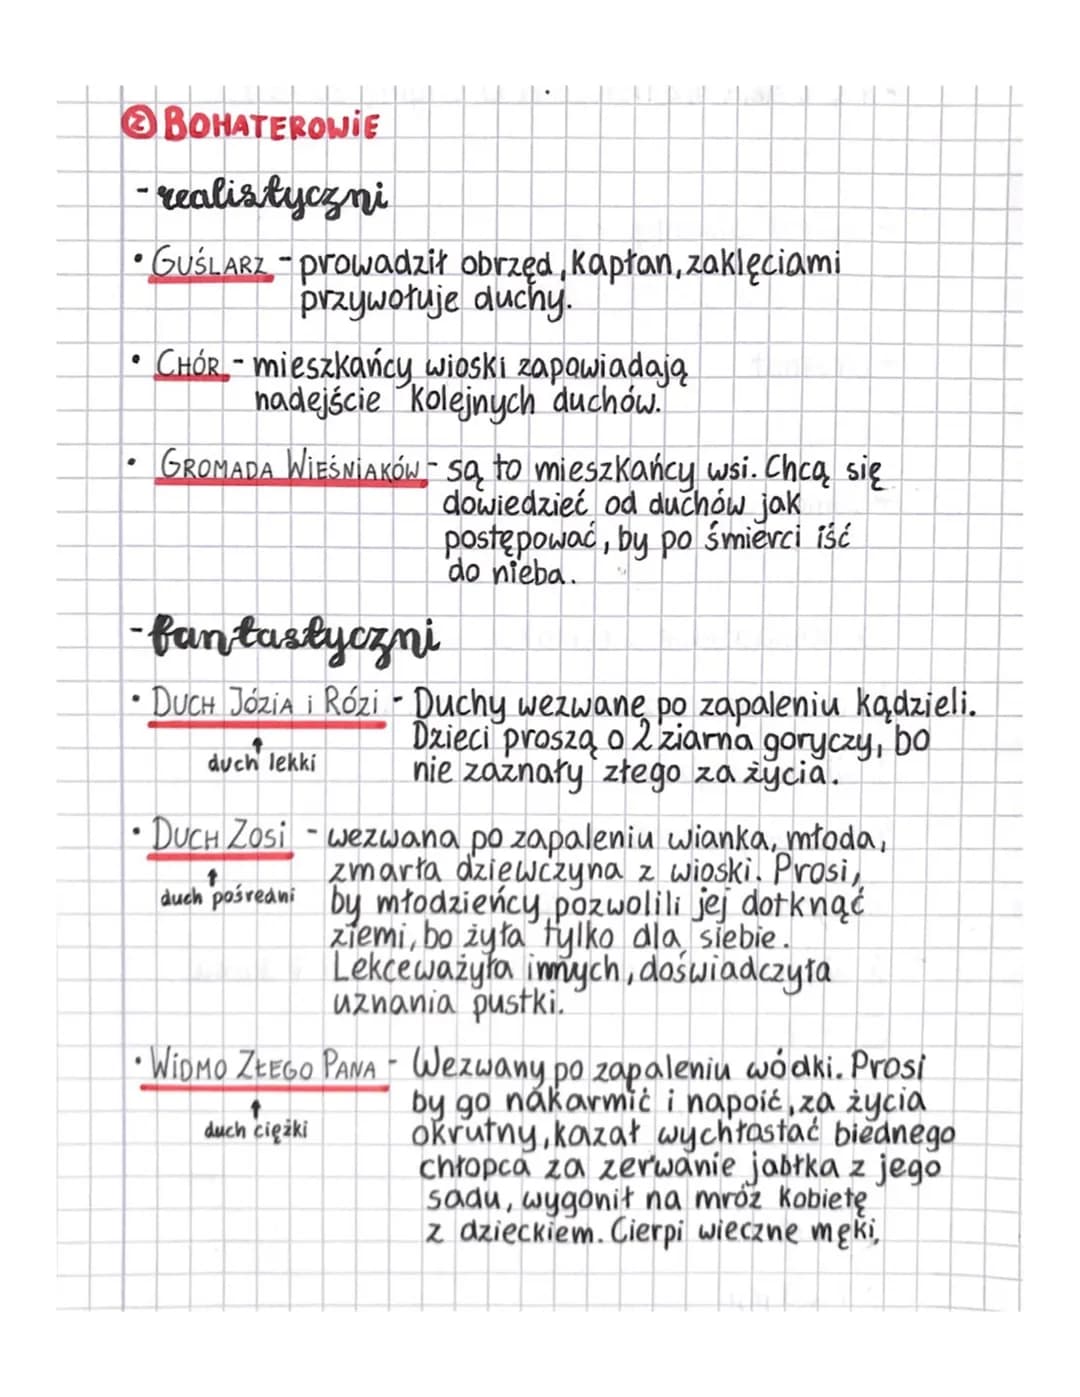 ② BOHATEROWiE
- realistyczni
• GUŚLARZ - prowadził obrzęd, kapłan, zaklęciami
przywołuje duchy.
• CHÓR - mieszkańcy wioski zapowiadają
nadejście kolejnych duchów.
• GROMADA WIEŚNIAKÓW - są to mieszkańcy wsi. Chcą się
dowiedzieć od duchów jak
postępować, by po śmierci iść
do nieba.
- fantastyczni
• DUCH JÓZIA i RÓZI - Duchy wezwane po zapaleniu kądzieli.
Dzieci proszą o 2 ziarna goryczy, bo
duch lekki
nie zaznały złego za życia.
• DUCH ZOSI - wezwana po zapaleniu wianka, młoda,
zmarła dziewczyna z wioski. Prosi,
duch pośredni
by młodzieńcy pozwolili jej dotknąć
ziemi, bo żyła tylko dla siebie.
Lekceważyła innych, doświadczyła
uznania pustki.
• WIDMO ZŁEGO PANA - Wezwany po zapaleniu wódki. Prosi
by go nakarmić i napoić, za życia
duch ciężki
okrutny, kazał wychłostać biednego
chłopca za zerwanie jabłka z jego
sadu, wygonił na mróz kobietę
z dzieckiem. Cierpi wieczne męki,